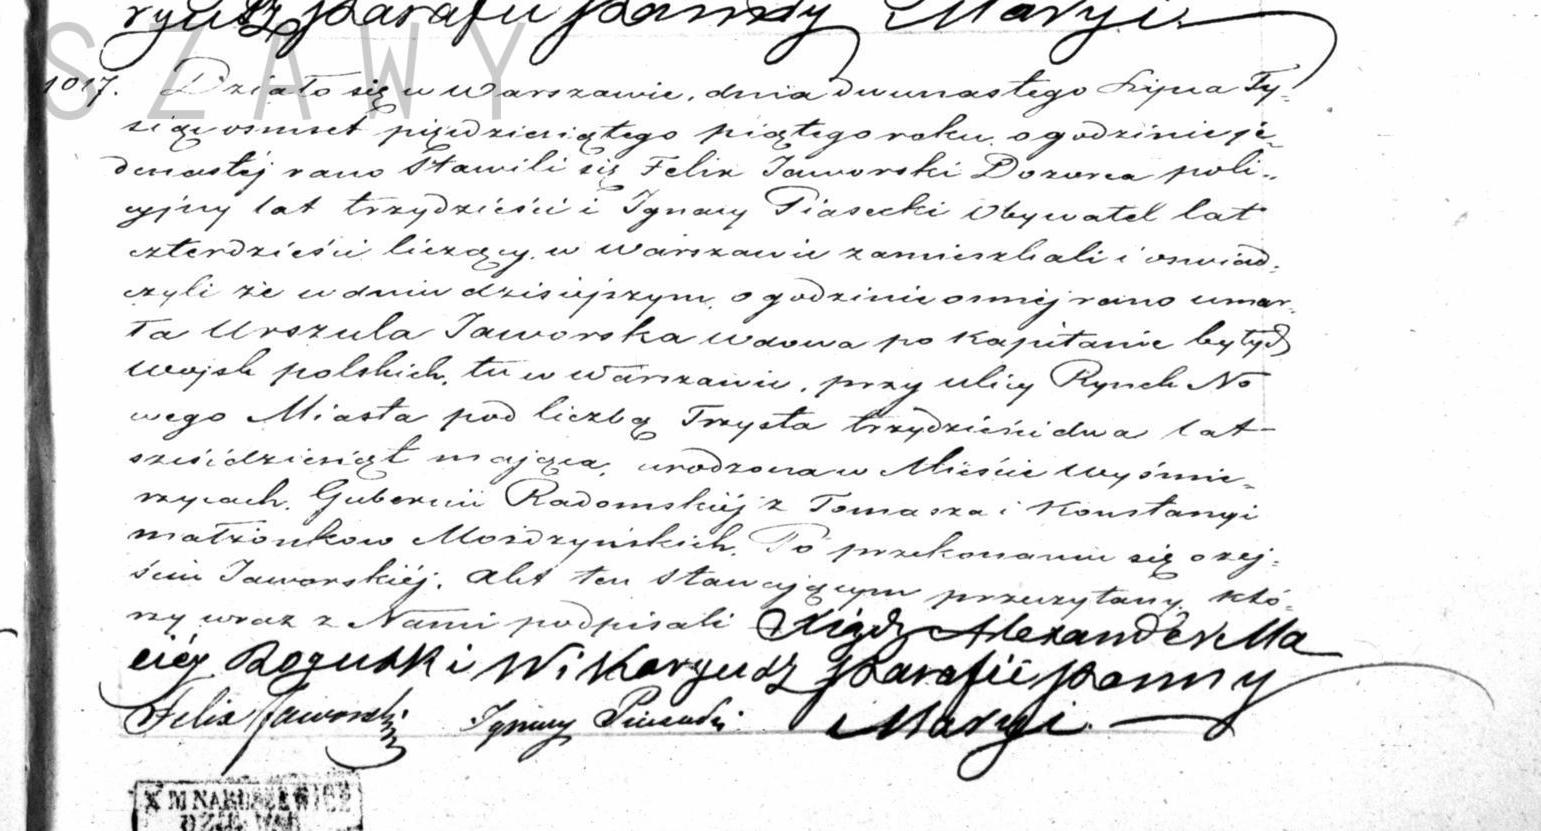 ryusz Parafii Panny Maryi.
SZAWY
1017. Działo się w Warszawie, dnia dwunastego Lipca Ty-
siąc osmset pięćdziesiątego piątego roku o godzinie je-
denastéj rano Stawili się Felix Jaworski Dozorca poli-
cyjny lat trzydzieści i Ignacy Piasecki Obywatel lat
czterdzieści liczący, w Warszawie zamieszkali i oswiad-
czyli że w dniu dzisiejszym, o godzinie osméj rano umar-
ła Urszula Jaworska wdowa po Kapitanie byłych
Wojsk polskich, tu w Warszawie, przy ulicy Rynek No
wego Miasta pod liczbą Trzysta trzydzieści dwa lat
sześćdziesiąt mająca, urodzona w Mieście Wyśmie-
rzycach, Gubernii Radomskiéj z Tomasza i Konstancyi
małżonkow Mordzyńskich. Po przekonaniu się o zej-
ściu Jaworskiéj, Akt ten stawającym przeczytany, któ-
ry wraz z Nami podpisali Xiądz Alexander Ma
ciéj Rogulski Wikaryusz Parafii Panny
Felix Jaworski Ignacy Piasecki Maryi.
X M NARUSZEWICZ